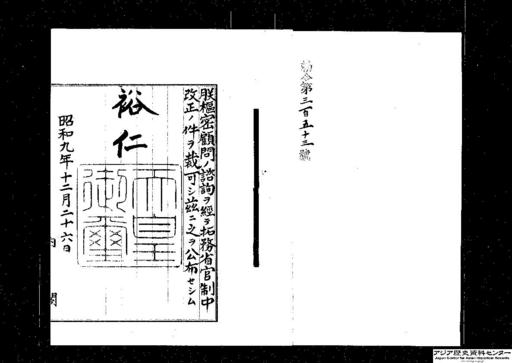 勅令第三百五十三號
朕樞密顧問ノ諮詢ヲ經テ拓務省官制中
改正ノ件ヲ裁可シ茲ニ之ヲ公布セシム
裕仁
天皇御璽
昭和九年十二月二十六日
内閣
アジア歴史資料センター
Japan Center for Asian Historical Records